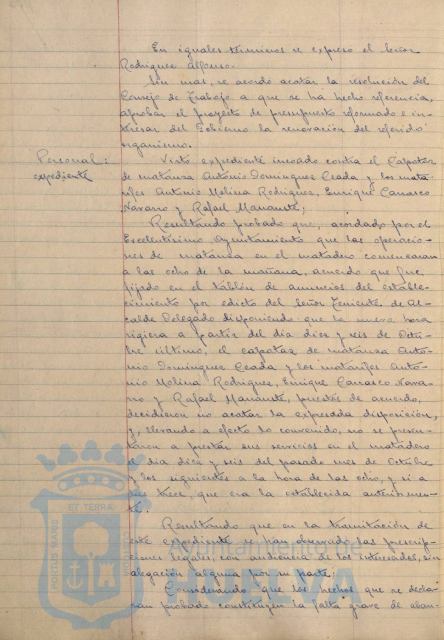 En iguales términos se expresó el Señor
Rodriguez Alfonso.
Sin mas, se acordó acatar la resolución del
Consejo de Trabajo a que se ha hecho referencia,
aprobar el proyecto de presupuesto reformado e in-
teresar del Gobierno la renovación del referido
organismo.
Personal:
expediente
Visto expediente incoado contra el Capataz
de matanza Antonio Dominguez Ceada y los mata-
rifes Antonio Molina Rodriguez, Enrique Carrasco
Navarro y Rafael
Resultando probado que, acordado por el
Excelentísimo Ayuntamiento que las operacio-
nes de matanza en el matadero comenzaran
a las ocho de la mañana, acuerdo que fue
fijado en el tablón de anuncios del estable-
cimiento por edicto del Señor Teniente de Al-
calde Delegado disponiendo que la nueva hora
rigiera a partir del dia diez y seis de Octu-
bre último, el capataz de matanza Anto-
nio Dominguez Ceada y los matarifes Anto-
nio Molina Rodriguez, Enrique Carrasco Nava-
rro y Rafael puestos de acuerdo,
decidieron no acatar la expresada disposición,
y, llevando a efecto lo convenido, no se presen-
taron a prestar sus servicios en el matadero
el dia diez y seis del pasado mes de Octubre
y los siguientes a la hora de las ocho, y si a
las trece, que era la establecida anteriormen-
te.
Resultando que en la tramitación de
este expediente se han observado las prescrip-
ciones legales, con audiencia de los interesados, sin
alegación alguna por su parte;
Considerando que los hechos que se decla-
ran probado constituyen la falta grave de aban-
ET TERRA
PORTUS MARIS